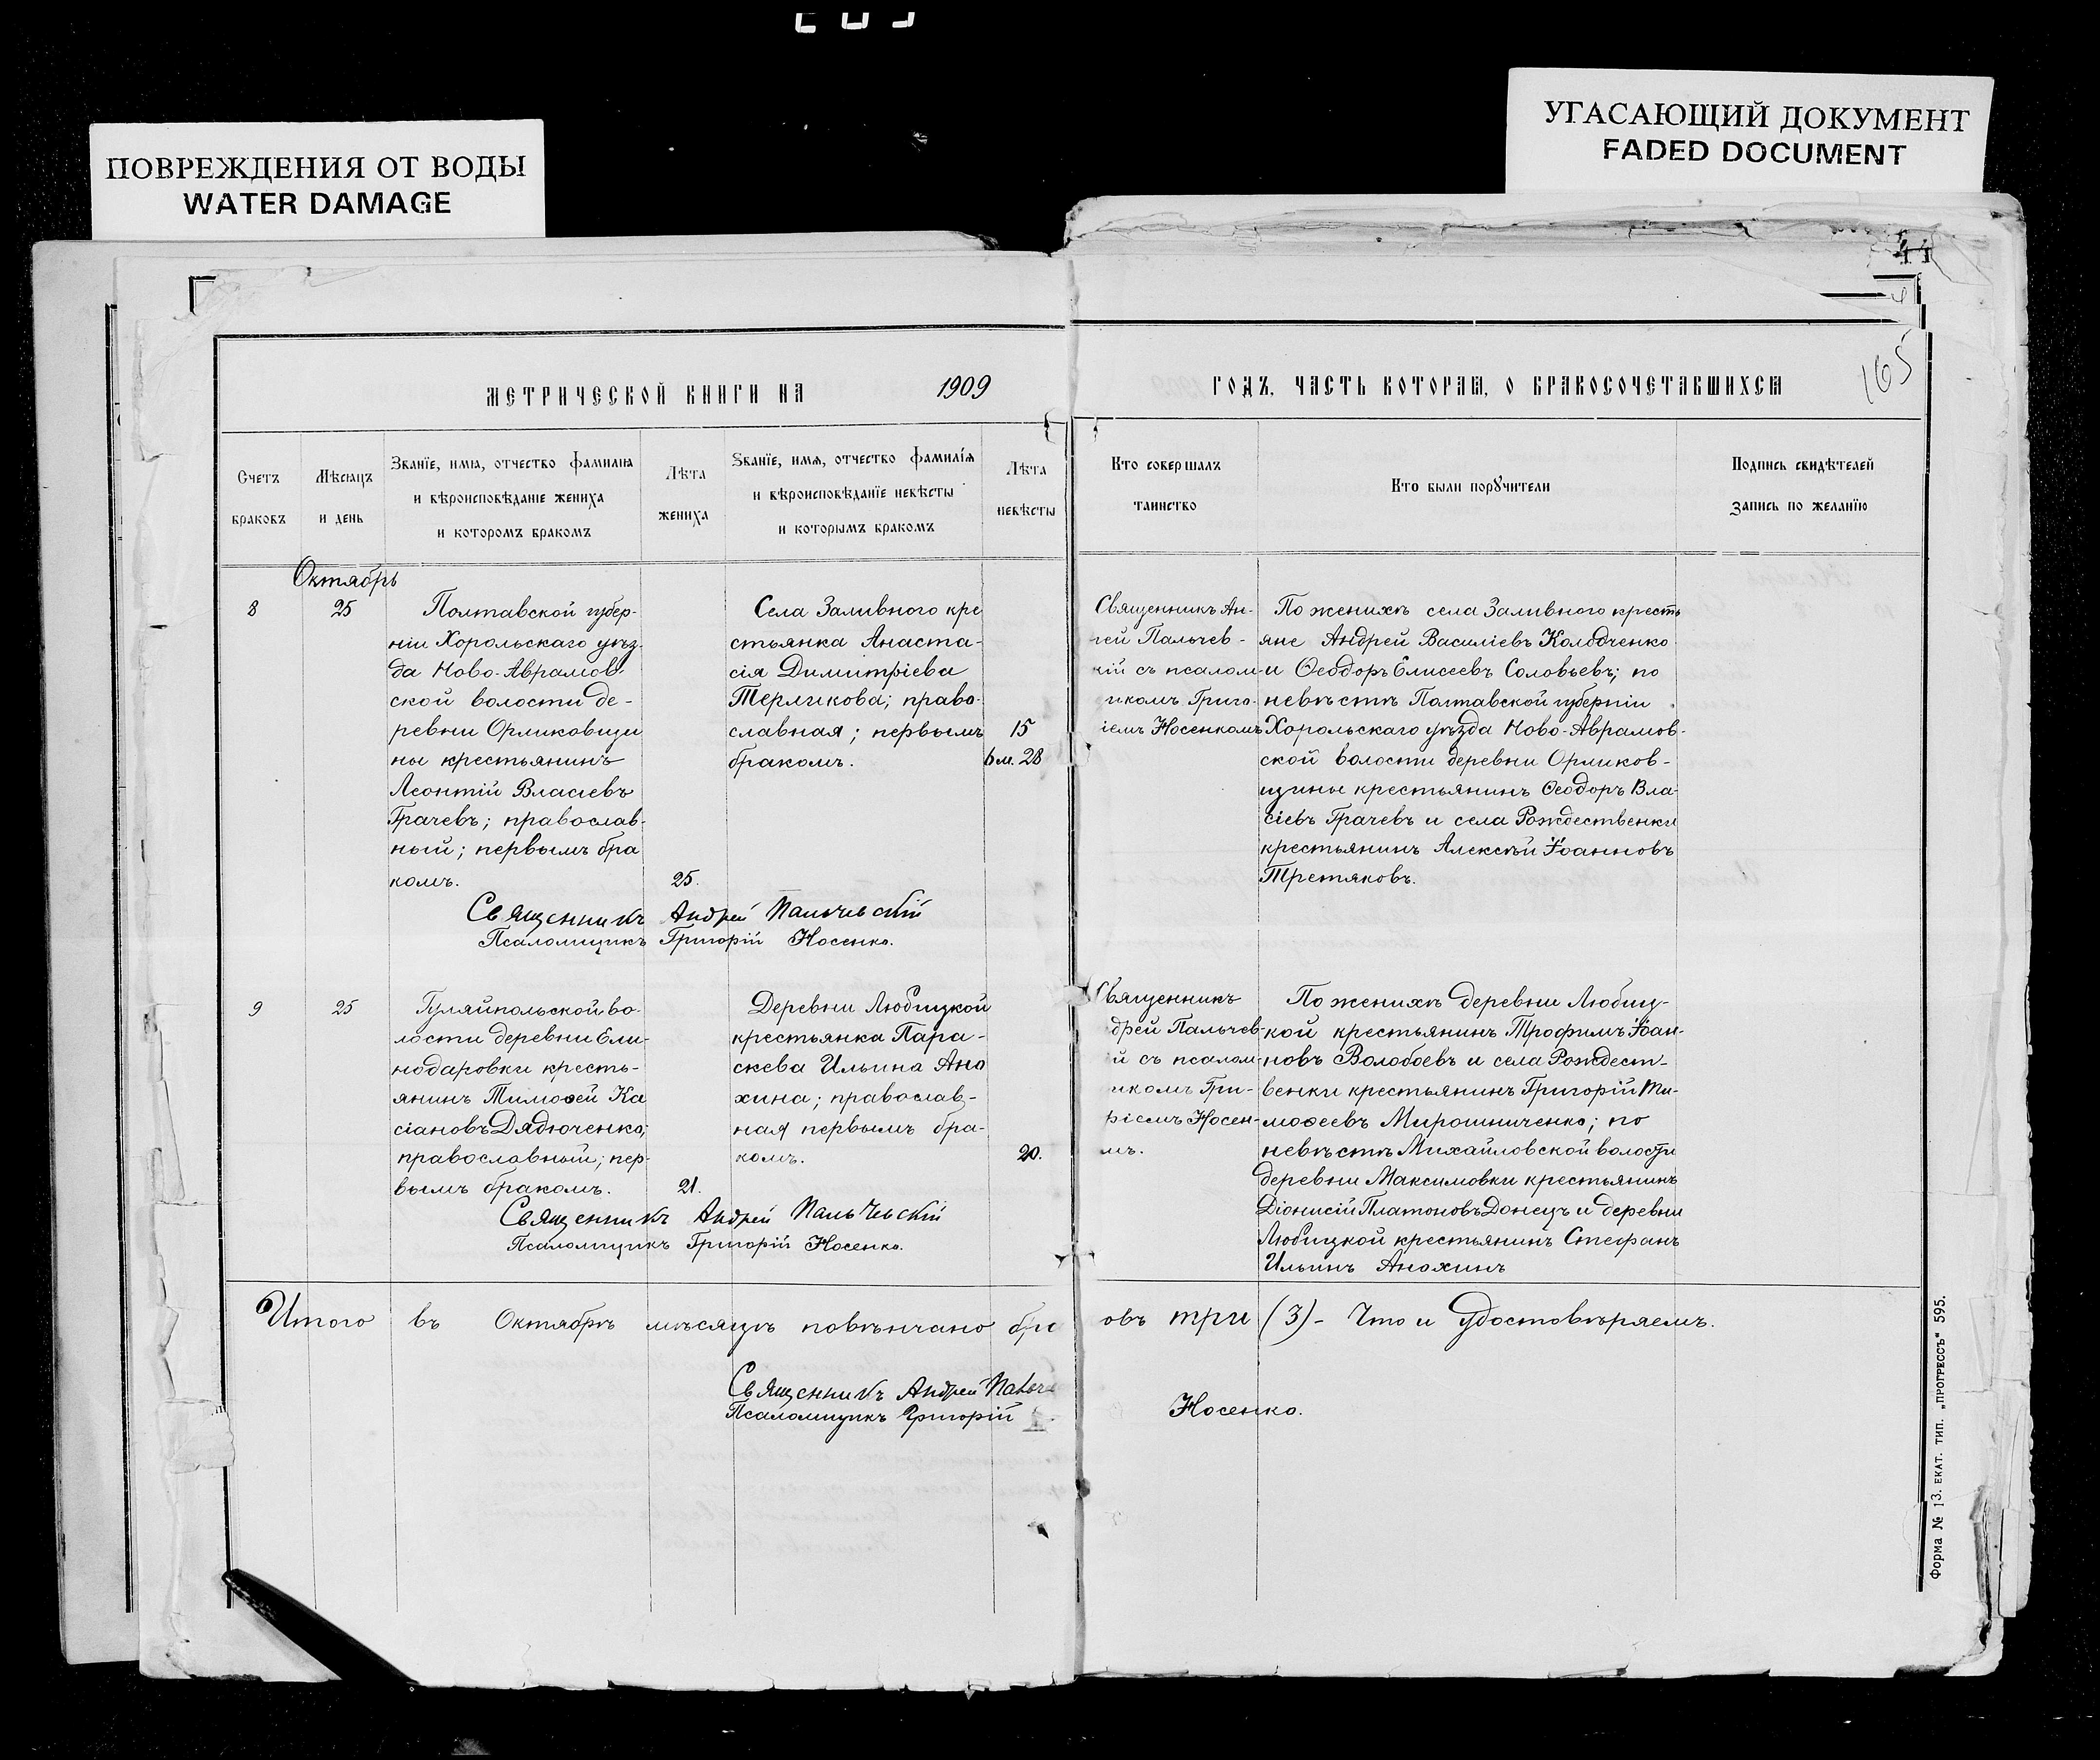 ПОВРЕЖДЕНИЯ ОТ ВОДЫ
WATER DAMAGE
УГАСАЮЩИЙ ДОКУМЕНТ
FADED DOCUMENT
44
165
МЕТРИЧЕСКОЙ КНИГИ НА 1909
ГОДЪ, ЧАСТЬ ВТОРАЯ, О БРАКОСОЧЕТАВШИХСЯ
Счетъ
браковъ
Мѣсяцъ
и день
Званїе, имя, отчество фамилія
и вѣроисповѣданіе жениха
и которомъ бракомъ
Лѣта
жениха
Званїе, имя, отчество фамилїя
и вѣроисповѣданїе невѣсты
и которымъ бракомъ
Лѣта
невѣсты
Кто совершалъ
таинство
Кто были поручители
Подпись свидѣтелей
запись по желанїю
Октябрь
8
25
Полтавской губер-
ніи Хорольскаго уѣз-
да Ново-Аврамов-
ской волости де-
ревни Орликовщи
ны крестьянинъ
Леонтій Власіевъ
Грачевъ; православ-
ный; первымъ бра
комъ.
25.
Села Заливного кре
стьянка Анаста-
сія Димитріева
Терликова; право-
славная; первымъ
бракомъ.
15
6 м. 28
Священникъ Ан-
рей Пальчев-
кій съ псалом
икомъ Григо-
іемъ Носенкомъ
По женихѣ села Заливного кресть
яне Андрей Василіевъ Колодченко
и Ѳеодоръ Елисеевъ Соловьевъ; по
невѣстѣ Полтавской губерніи
Хорольскаго уѣзда Ново-Аврамов-
ской волости деревни Орликов-
щины крестьянинъ Ѳеодоръ Вла-
сіевъ Грачевъ и села Рождественки
крестьянинъ Алексѣй Іоанновъ
Третяковъ.
Священникъ Андрей Пальчевскій
Псаломщикъ Григорій Носенко.
9
25
Гуляйпольской во-
лости деревни Ели-
нодаровки кресть-
янинъ Тимоѳей Ка
сіановъ Дядюченко;
православный; пер-
вымъ бракомъ.
21.
Деревни Любицкой
крестьянка Пара-
скева Ильина Ано
хина; православ-
ная первымъ бра-
комъ.
20.
Священникъ
дрей Пальчев-
й съ псалом-
икомъ Гри-
ріемъ Носен-
мъ.
По женихѣ деревни Любиц-
кой крестьянинъ Трофимъ Іоан-
новъ Волобоевъ и села Рождест-
венки крестьянинъ Григорій Ти-
моѳеевъ Мирошниченко; по
невѣстѣ Михайловской волости
деревни Максимовки крестьянинъ
Діонисій Платоновъ Донецъ и деревни
Любицкой крестьянинъ Стефанъ
Ильинъ Анохинъ
Священникъ Андрей Пальчевскій
Псаломщикъ Григорій Носенко.
Итого въ Октябрѣ мѣсяцѣ повѣнчано бра
овъ три (3) - Что и удостовѣряемъ.
Священникъ Андрей Пальче
Псаломщикъ Григорій
Носенко.
Форма № 13. ЕКАТ. ТИП. „ПРОГРЕССЪ“ 595.